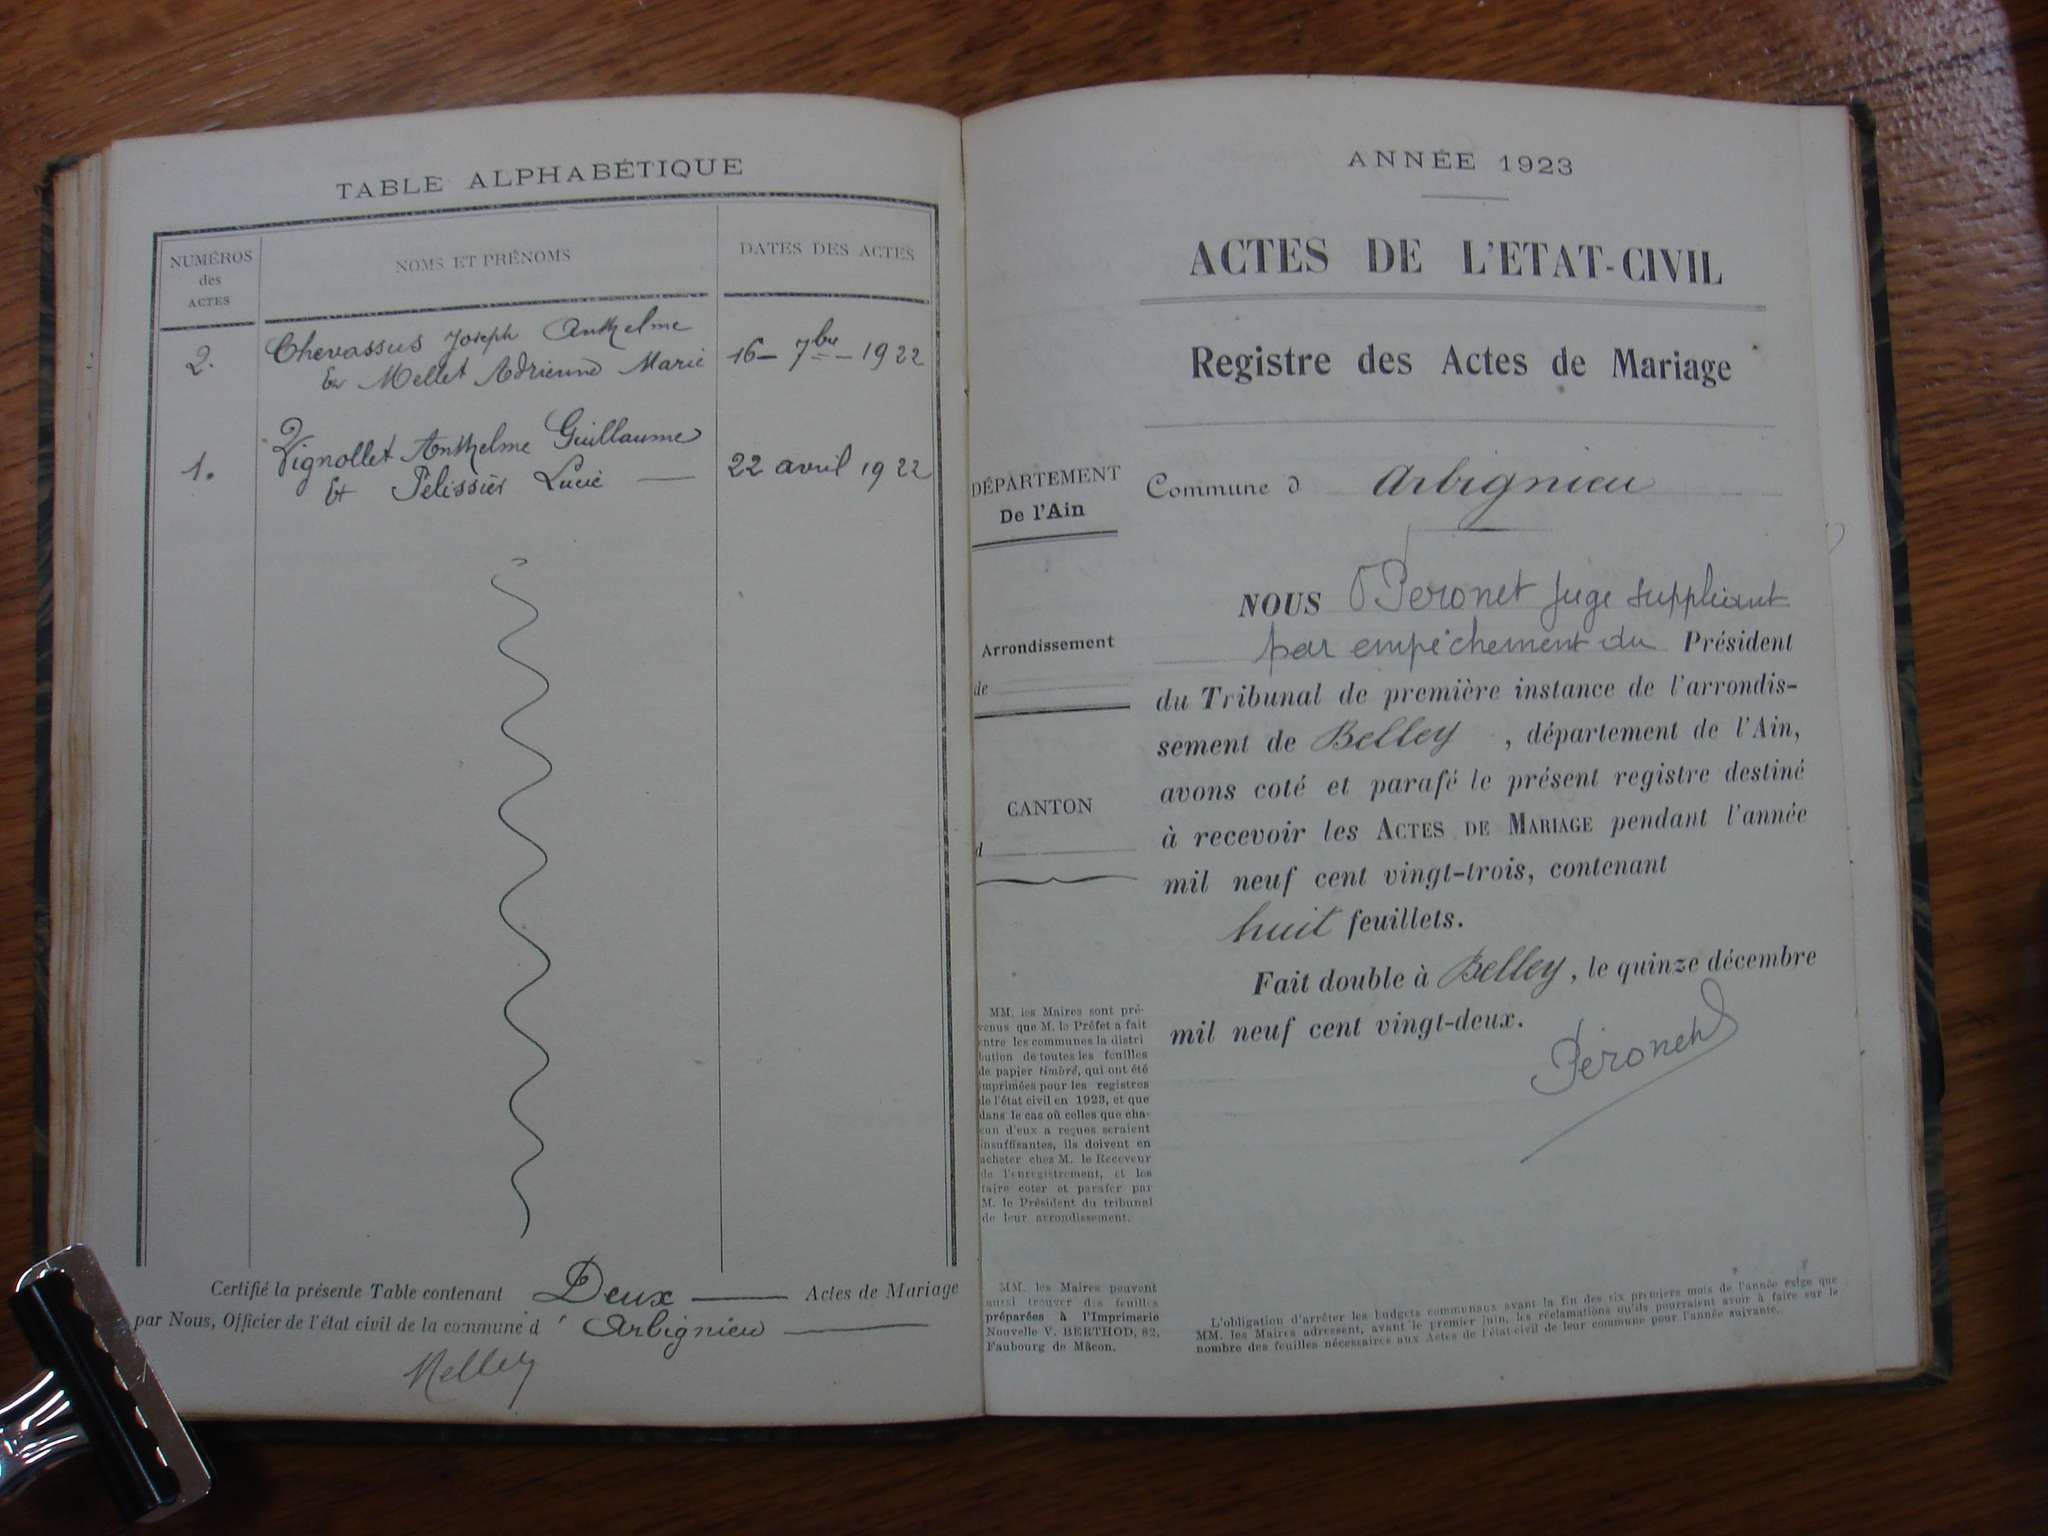 TABLE ALPHABÉTIQUE
NUMÉROS
des
ACTES
NOMS ET PRÉNOMS
DATES DES ACTES
2.
Chevassus Joseph Anthelme
Et Mellet Adrienne Marie
16 - 7bre - 1922
1.
Vignollet Anthelme Guillaume
Et Pélissier Lucie —
22 avril 1922
Certifié la présente Table contenant Deux — Actes de Mariage
par Nous, Officier de l'état civil de la commune d' Arbignieu —
ANNÉE 1923
ACTES DE L'ETAT-CIVIL
Registre des Actes de Mariage
DÉPARTEMENT
De l'Ain
Arrondissement
de
CANTON
d
Commune d Arbignieu
NOUS Peronet Juge suppléant
par empêchement du Président
du Tribunal de première instance de l'arrondis-
sement de Belley , département de l'Ain,
avons coté et parafé le présent registre destiné
à recevoir les ACTES DE MARIAGE pendant l'année
mil neuf cent vingt-trois, contenant
huit feuillets.
Fait double à Belley, le quinze décembre
mil neuf cent vingt-deux.
Péronet
MM. les Maires sont pré-
venus que M. le Préfet a fait
entre les communes la distri
bution de toutes les feuilles
de papier timbré, qui ont été
imprimées pour les registres
de l'état civil en 1923, et que
dans le cas où celles que cha-
cun d'eux a reçues seraient
insuffisantes, ils doivent en
acheter chez M. le Receveur
de l'enregistrement, et les
faire coter et parafer par
M. le Président du tribunal
de leur arrondissement.
MM. les Maires peuvent
aussi trouver des feuilles
préparées à l'Imprimerie
Nouvelle V. BERTHOD, 82,
Faubourg de Mâcon.
L'obligation d'arrêter les budgets communaux avant la fin des six premiers mois de l'année exige que
MM. les Maires adressent, avant le premier juin, les réclamations qu'ils pourraient avoir à faire sur le
nombre des feuilles nécessaires aux Actes de l'état-civil de leur commune pour l'année suivante.